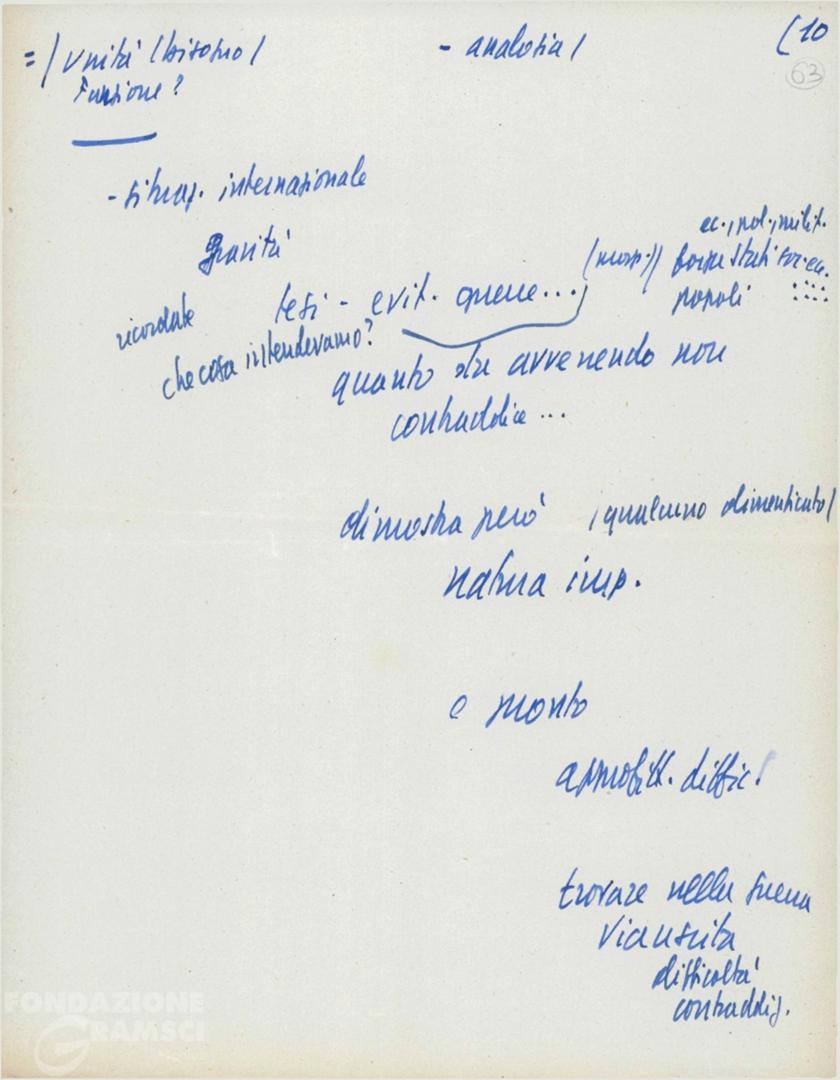 = / Unità (bisogno)
- analogia /
(10
63
Funzione?
- situaz. internazionale
gravità
ec., pol., milit.
forze stati soc. ec.
popoli
ricordate
tesi - evit. guerre...
che cosa intendevamo?
quanto sta avvenendo non
contraddice ...
dimostra però (qualcuno dimenticato)
natura imp.
è pronto
approfitt. diffic.
trovare nella guerra
via uscita
difficoltà
contraddiz.
FONDAZIONE
GRAMSCI